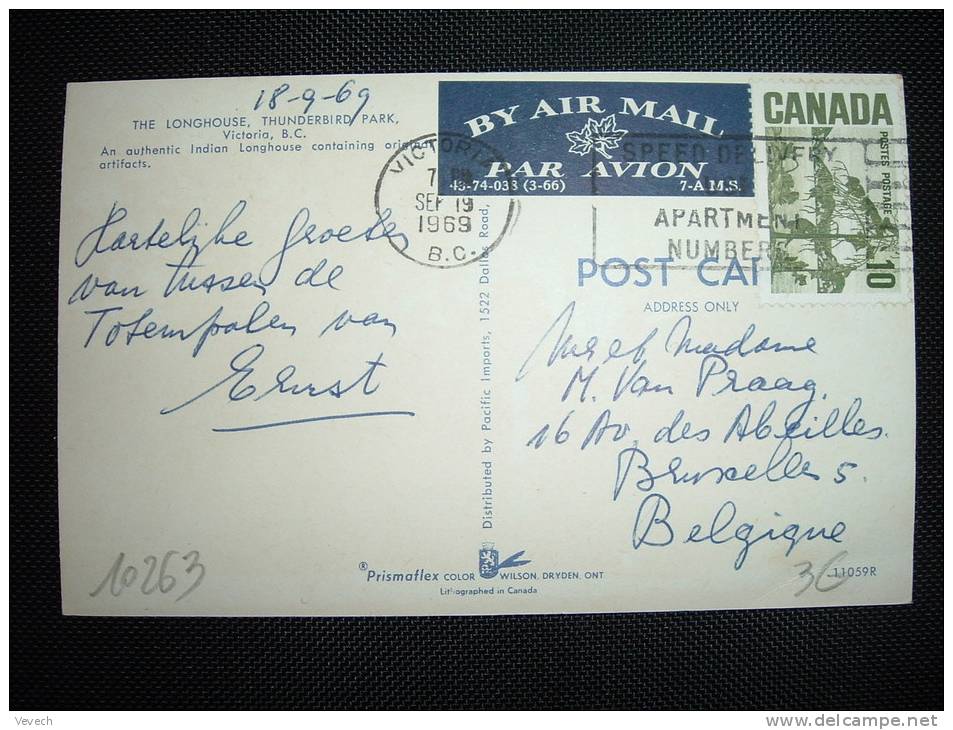 18-9-69
THE LONGHOUSE, THUNDERBIRD PARK,
Victoria, B.C.
An authentic Indian Longhouse containing original
artifacts.
BY AIR MAIL
PAR AVION
43-74-038 (3-66) 7-A.M.S.
VICTORIA
7 PM
SEP 19
1969
B.C.
SPEED DELIVERY
APARTMENT
NUMBERS
CANADA
POSTES POSTAGE
10
POST CARD
ADDRESS ONLY
Hartelijke groeten
van tussen de
Totempalen van
Ernst
Distributed by Pacific Imports, 1522 Dallas Road,
Mr et Madame
M. Van Praag
16 Av. des Abeilles.
Bruxelles 5.
Belgique
10263
36
® Prismaflex COLOR WILSON, DRYDEN, ONT
11059R
Lithographed in Canada
Vevech
www.delcampe.net